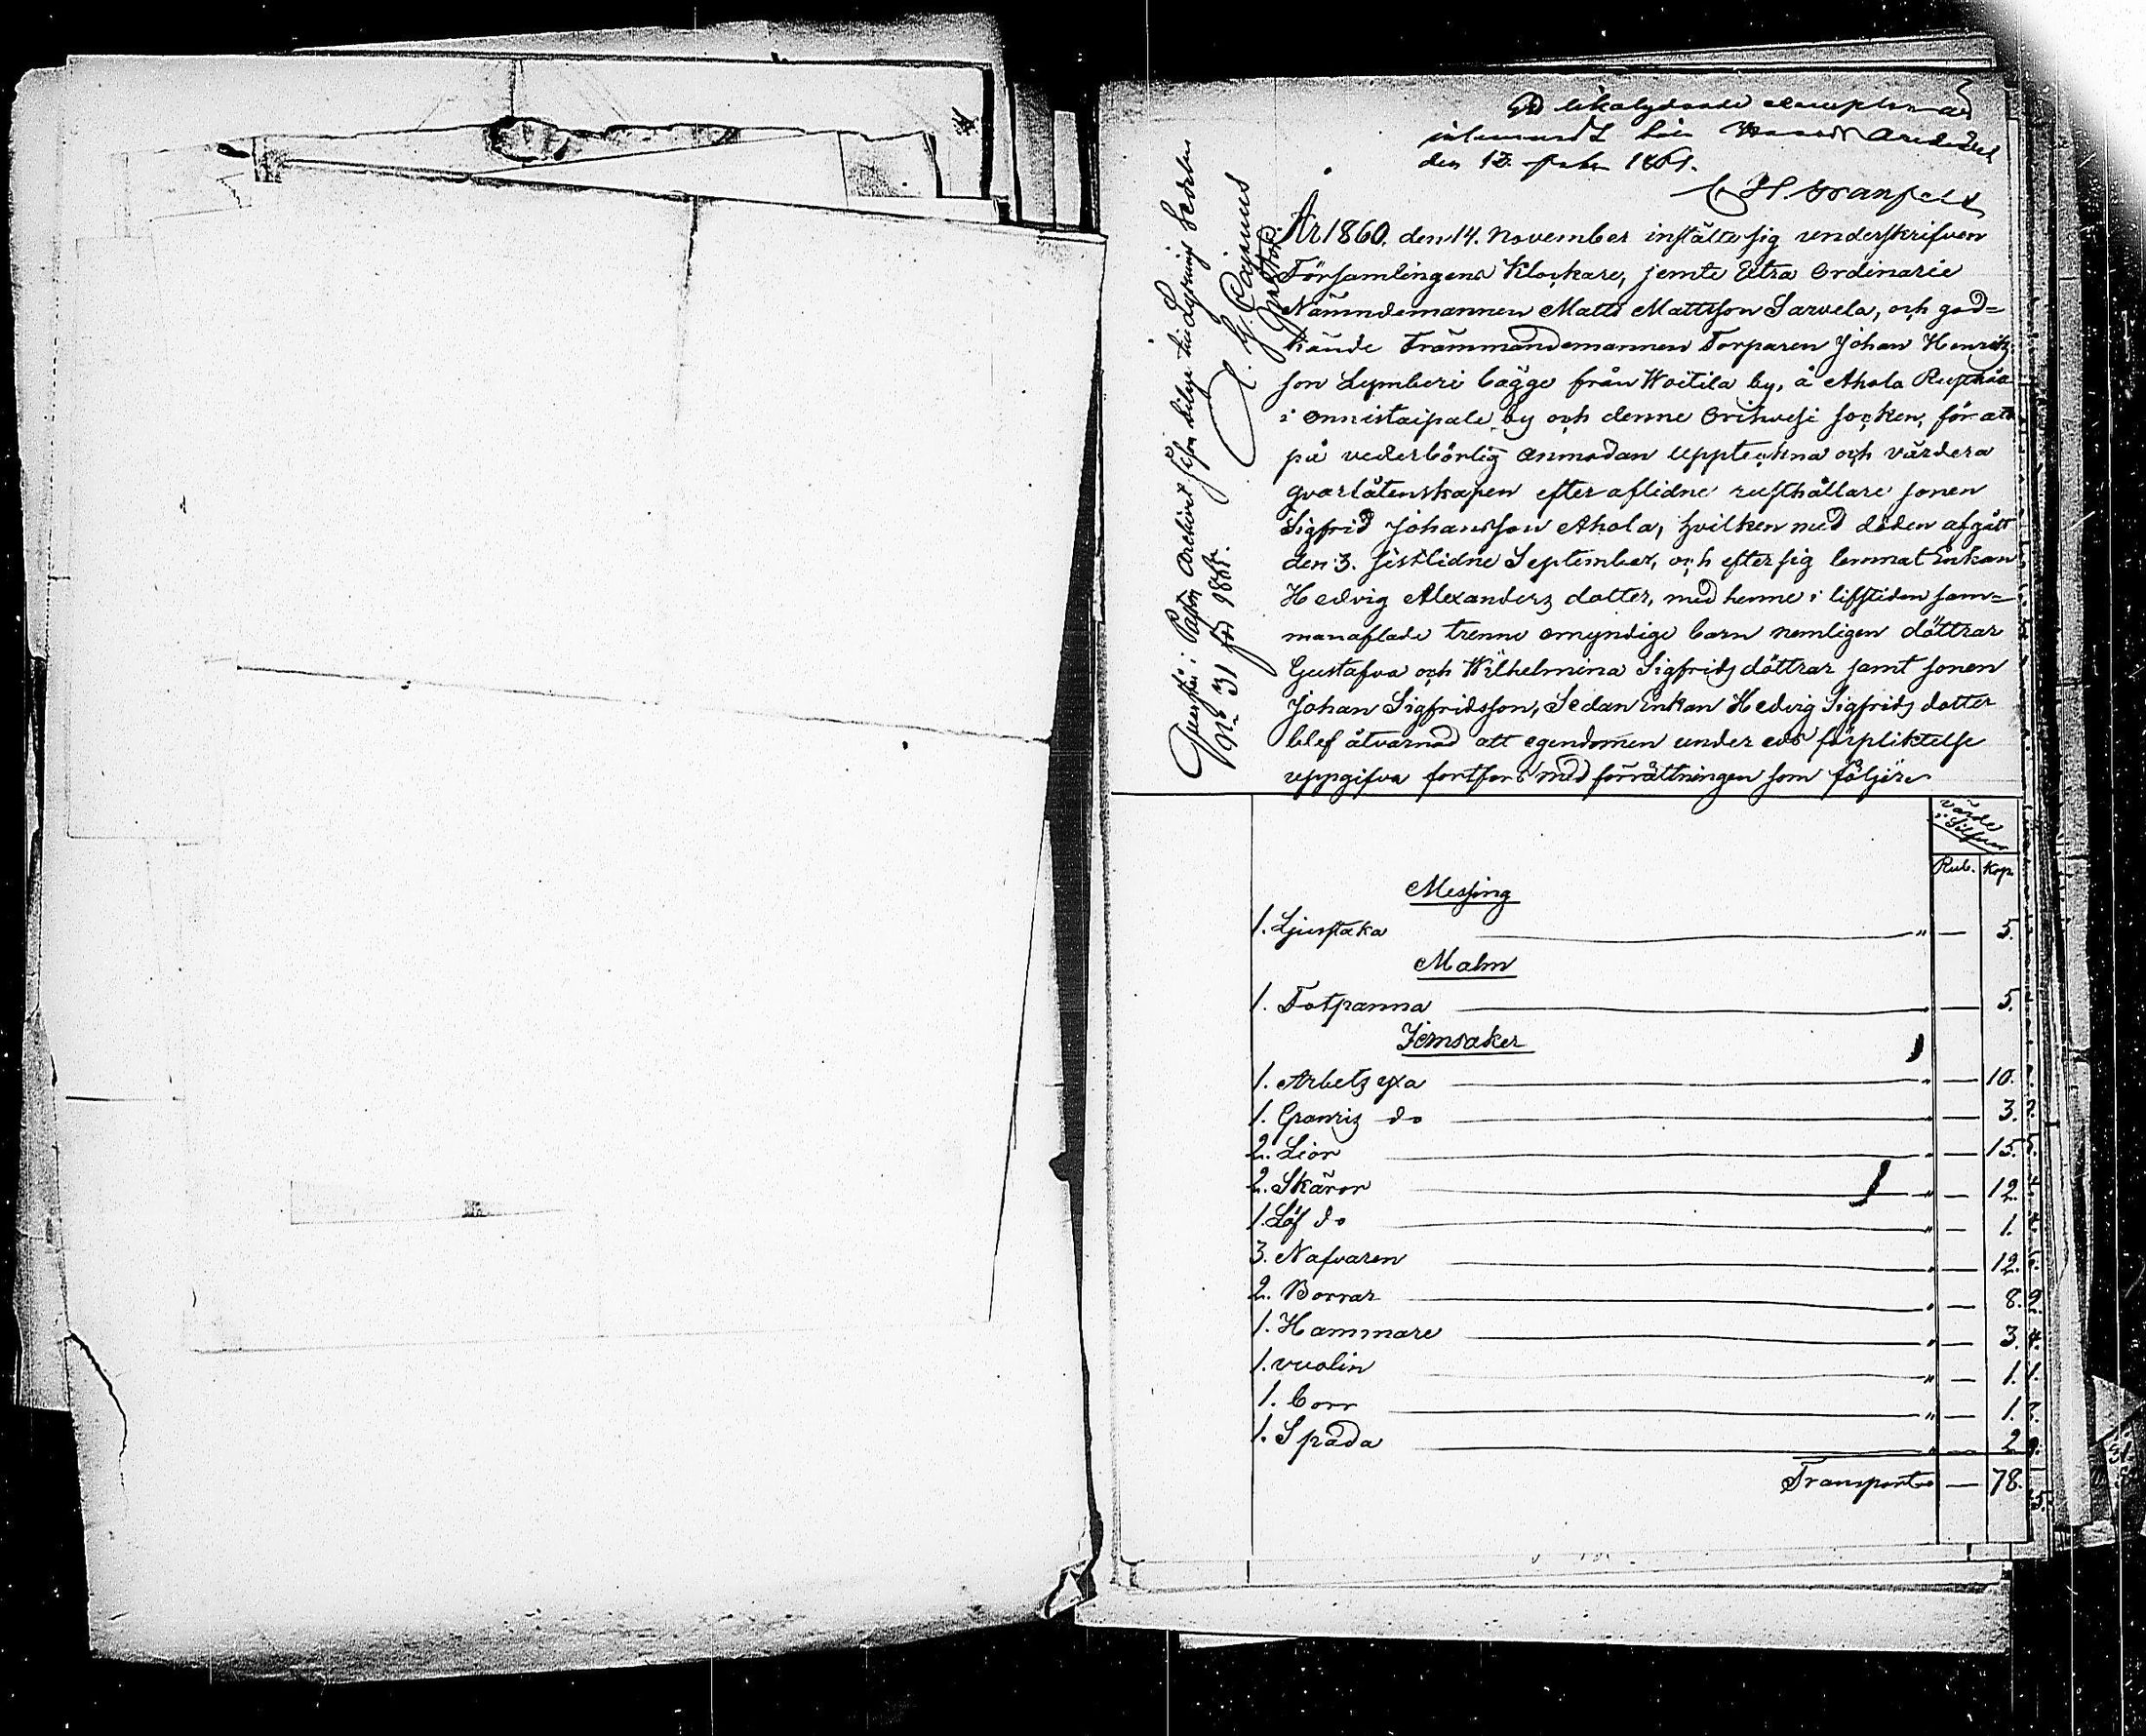 likalydande exemplar
den 12 1861.
C H. Granfelt
Öfverstår i Past: Archivet såsom bilaga till Lysnings Sedelen
No 31 för 1865.
År 1860. den 14. November instälte sig underskrifven
Församlingens Klockare, jemte Extra Ordinarie
Nämndemannen Matts Mattsson Sarvela, och god-
kände Främmandemannen Torparen Johan Henriks
son Lymberi bägge från Woitila by, å Ahola Rusthåll
i Onnistaipale by och denne Orihvesi socken, för att
på vederbörlig anmodan uppteckna och värdera
qvarlåtenskapen efter aflidne rusthållare sonen
Sigfrid Johansson Ahola, hvilken med döden afgått
den 3. sistlidne September, och efter sig lemnat Enkan
Hedvig Alexanders dotter, med henne i lifstiden sam-
manaflade trenne omyndige barn nemligen döttrar
Gustafva och Wilhelmina Sigfrids döttrar samt sonen
Johan Sigfridsson, Sedan Enkan Hedvig Sigfrids dotter
blef åtvarnad att egendomen under eds förpliktelse
uppgifva fortfors med förrättningen som följer
värde
i Silfver
Rub. Kop
Messing
1. Ljusstaka " — 5.
Malm
1. Fotpanna " — 5.
Jernsaker
1. Arbets yxa " — 10.
1. Granris do " — 3.
2. Lior " — 15.
2. Skäror " — 12.
1. Löf do " — 1.
3. Nafvaren " — 12.
2. Borrar " — 8.
1. Hammare " — 3.
1. vuolin " — 1.
1. borr " — 1.
1. Spada " — 2
Transport — 78.